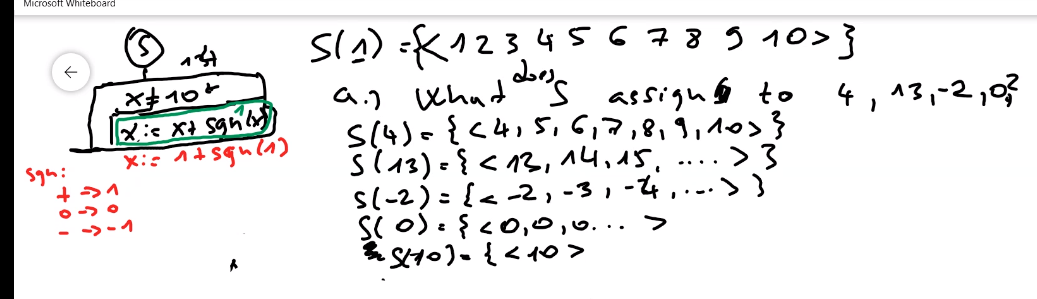 Microsoft Whiteboard
S
x≠10
x:= x+ sgn(x)
x:= 1+sgn(1)
sgn:
+ -> 1
0 -> 0
- -> -1
S(1) ={< 1 2 3 4 5 6 7 8 9 10> }
a.) What does S assign to 4, 13, -2, 0?
S(4) = { < 4, 5, 6, 7, 8, 9, 10 > }
S(13) = { < 13, 14, 15, .... > }
S(-2) = { < -2, -3, -4, ... > }
S(0) = { < 0, 0, 0 ... >
S(10) = { < 10 >